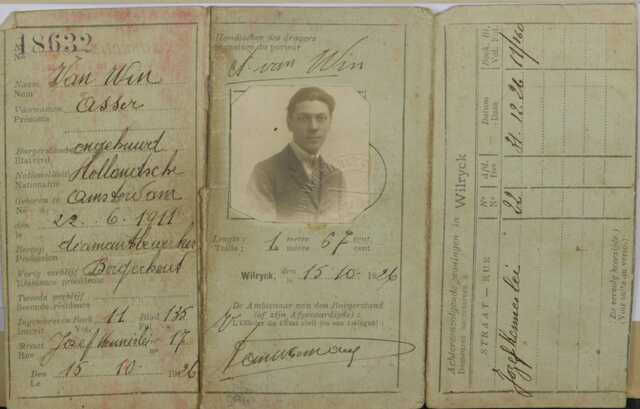 18632
No
Naam
Nom
Van Win
Voornamen
Prénoms
Asser
Burgerstand
Etat civil
ongehuwd
Nationaliteit
Nationalité
Hollandsche
Geboren te
Né à
Amsterdam
den
le
22 - 6 - 1911
Beroep
Profession
diamantbewerker
Vorig verblijf
Résidence précédente
Borgerhout
Tweede verblijf
Seconde résidence
Ingeschreven Boek 11 Blad 135
Inscrit Vol. Fol.
Straat Jozef Hennislei No 17
Rue
Den 15 - 10 - 1926
Le
Handteeken des dragers
Signature du porteur
A van Win
Lengte : 1 meter 67 cent.
Taille : mètre cent.
Wilryck, den 15 - 10 - 1926
le
De Ambtenaar van den Burgerstand
(of zijn Afgevaardigde) :
L'Officier de l'Etat civil (ou son délégué) :
Achtereenvolgende woningen in Wilryck
Demeures successives à
STRAAT — RUE
No
No
Afd.
Datum
Date
Boek, Bl.
Vol. Fol.
Jozef Hennislei
22
31.12.26
17/160
Zie vervolg keerzijde !
Voir suite au verso !